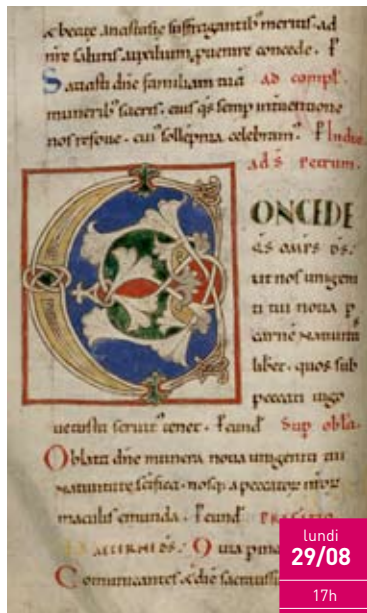 & beate anastasie suffragantib' meritis ad
nre salutis auxilium puenire concede. P
Satiasti dne familiam tuā ad compl'.
muneribˀ sacris. eius qs semp interuentione
nos refoue. cuiˀ sollepnia celebramˀ. P
ad S Petrum.
CONCEDE
QS OMPS DS.
ut nos unigeni
ti tui noua p
carnē natiuitas
liber&. quos sub
peccati iugo
uetusta seruitˀ tenet. P eund Sup obla.
Oblata dne munera noua unigeniti tui
natiuitate sc̄ifica. nosq; a peccatorˀ nr̄orˀ
maculis emunda. P eund
ÆTERNE DS. Quia
Communicantes & diē sacratissi
lundi
29/08
17h